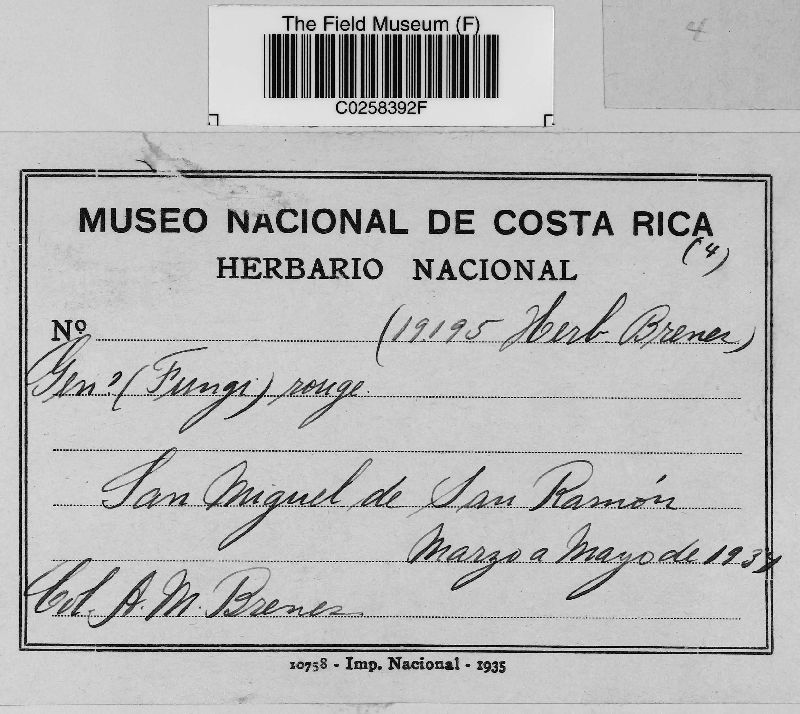 4
The Field Museum (F)
C0258392F
MUSEO NACIONAL DE COSTA RICA
(4)
HERBARIO NACIONAL
Nº (19195 Herb Brenes)
Gen? (Fungi) rouge
San Miguel de San Ramón
Marzo a Mayo de 1934
Col. A. M. Brenes
10758 - Imp. Nacional - 1935